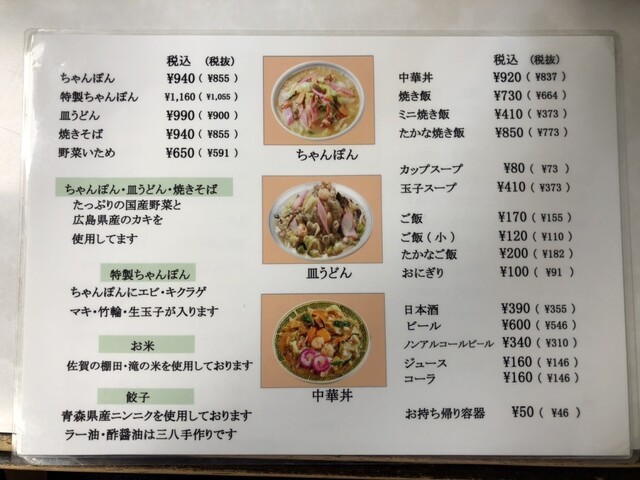 税込 (税抜)
ちゃんぽん ¥940 ( ¥855 )
特製ちゃんぽん ¥1,160 ( ¥1,055 )
皿うどん ¥990 ( ¥900 )
焼きそば ¥940 ( ¥855 )
野菜いため ¥650 ( ¥591 )
ちゃんぽん・皿うどん・焼きそば
たっぷりの国産野菜と
広島県産のカキを
使用してます
特製ちゃんぽん
ちゃんぽんにエビ・キクラゲ
マキ・竹輪・生玉子が入ります
お米
佐賀の棚田・滝の米を使用しております
餃子
青森県産ニンニクを使用しております
ラー油・酢醤油は三八手作りです
ちゃんぽん
皿うどん
中華丼
税込 (税抜)
中華丼 ¥920 ( ¥837 )
焼き飯 ¥730 ( ¥664 )
ミニ焼き飯 ¥410 ( ¥373 )
たかな焼き飯 ¥850 ( ¥773 )
カップスープ ¥80 ( ¥73 )
玉子スープ ¥410 ( ¥373 )
ご飯 ¥170 ( ¥155 )
ご飯 ( 小 ) ¥120 ( ¥110 )
たかなご飯 ¥200 ( ¥182 )
おにぎり ¥100 ( ¥91 )
日本酒 ¥390 ( ¥355 )
ビール ¥600 ( ¥546 )
ノンアルコールビール ¥340 ( ¥310 )
ジュース ¥160 ( ¥146 )
コーラ ¥160 ( ¥146 )
お持ち帰り容器 ¥50 ( ¥46 )